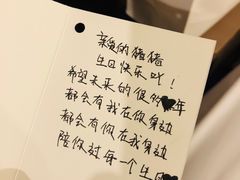 亲爱的猪猪
生日快乐吖！
希望未来的很多年
都会有我在你身边
都会有你在我身边
陪你过每一个生日